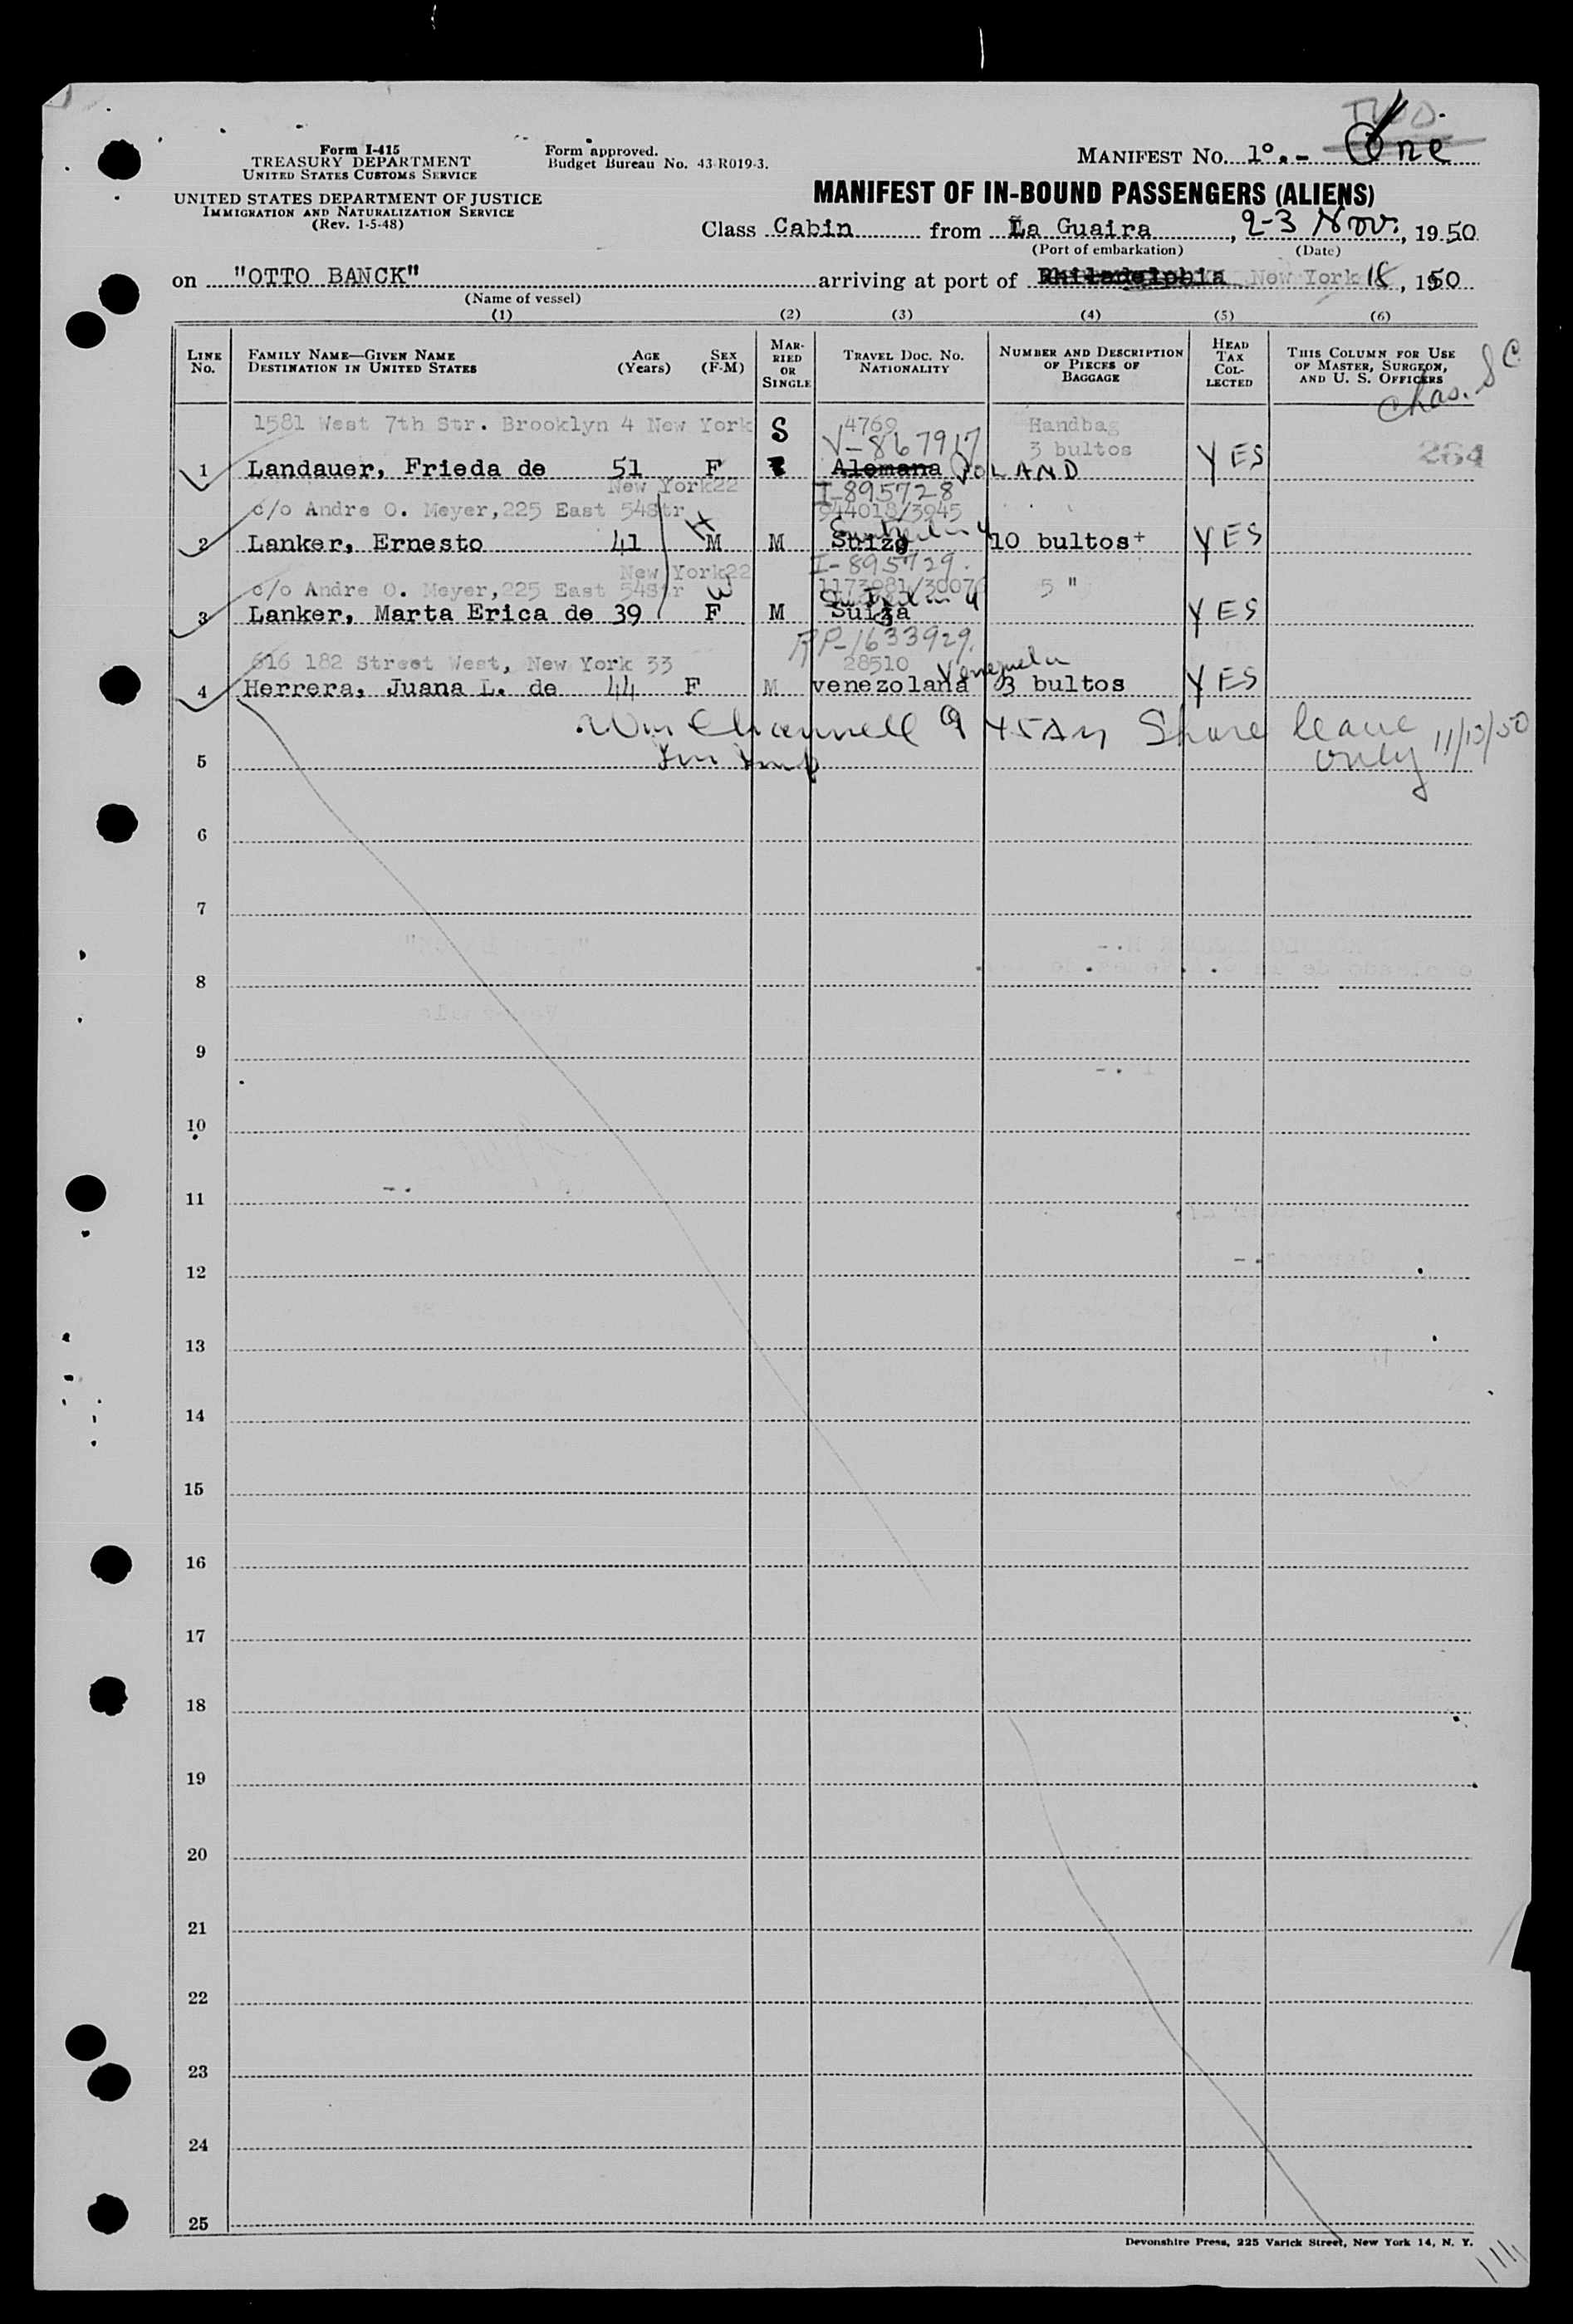 TWO.
Form I-415
TREASURY DEPARTMENT
UNITED STATES CUSTOMS SERVICE
UNITED STATES DEPARTMENT OF JUSTICE
IMMIGRATION AND NATURALIZATION SERVICE
(Rev. 1-5-48)
Form approved.
Budget Bureau No. 43-R019-3.
MANIFEST No. 1º.- One
MANIFEST OF IN-BOUND PASSENGERS (ALIENS)
Class Cabin from La Guaira, 2-3 Nov., 1950
(Port of embarkation) (Date)
on "OTTO BANCK" arriving at port of Philadelphia New York 18, 1950
(Name of vessel)
(1) (2) (3) (4) (5) (6)
LINE No. FAMILY NAME—GIVEN NAME DESTINATION IN UNITED STATES AGE (Years) SEX (F-M) MARRIED OR SINGLE TRAVEL DOC. No. NATIONALITY NUMBER AND DESCRIPTION OF PIECES OF BAGGAGE HEAD TAX COLLECTED THIS COLUMN FOR USE OF MASTER, SURGEON, AND U. S. OFFICERS
Chas. S C
1581 West 7th Str. Brooklyn 4 New York S 4769 Handbag
V-867917 3 bultos
1 Landauer, Frieda de 51 F Alemana POLAND YES 264
New York22 I-895728
c/o Andre O. Meyer,225 East 54Str 944018/3945
2 Lanker, Ernesto 41 M M Suizo 10 bultos+ YES
H
New York22 I-895729.
c/o Andre O. Meyer,225 East 54Str 5 "
W
3 Lanker, Marta Erica de 39 F M Suiza YES
RP-1633929.
616 182 Street West, New York 33 28510 Venezuela
4 Herrera, Juana L. de 44 F M venezolana 3 bultos YES
Wm Channell 9 45AM Shore leave only 11/13/50
5
6
7
8
9
10
11
12
13
14
15
16
17
18
19
20
21
22
23
24
25
Devonshire Press, 225 Varick Street, New York 14, N. Y.